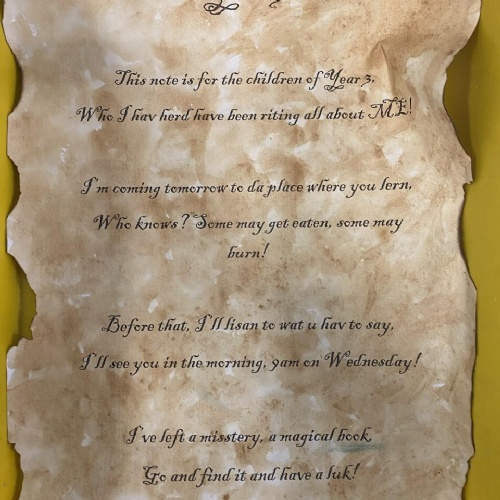 This note is for the children of Year 3,
Who I hav herd have been riting all about ME!
I'm coming tomorrow to da place where you lern,
Who knows? Some may get eaten, some may
burn!
Before that, I'll lisan to wat u hav to say,
I'll see you in the morning, 9am on Wednesday!
I've left a misstery, a magical book,
Go and find it and have a luk!